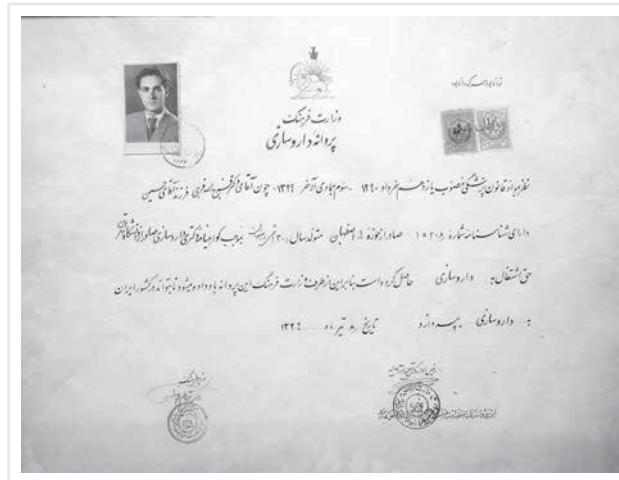 توانا بود هر که دانا بود
وزارت فرهنگ
پروانه داروسازی
نظر بمواد قانون پزشکی مصوب یازدهم خرداد ۱۲۹۰ سوم جمادی الاخر ۱۳۲۹ چون آقای دکتر فرزند آقای حسین
دارای شناسنامه شماره ۱۵۲۰۸ صادر از حوزه ۱ اصفهان متولد سال ۱۳۰۰ بموجب گواهینامه دکتری داروسازی صادر از دانشگاه تهران
حق اشتغال به داروسازی حاصل کرده است بنابراین از طرف وزارت فرهنگ این پروانه باو داده میشود تا بتواند در کشور ایران
به داروسازی بپردازد تاریخ تیر ماه ۱۳۲۹
وزیر فرهنگ